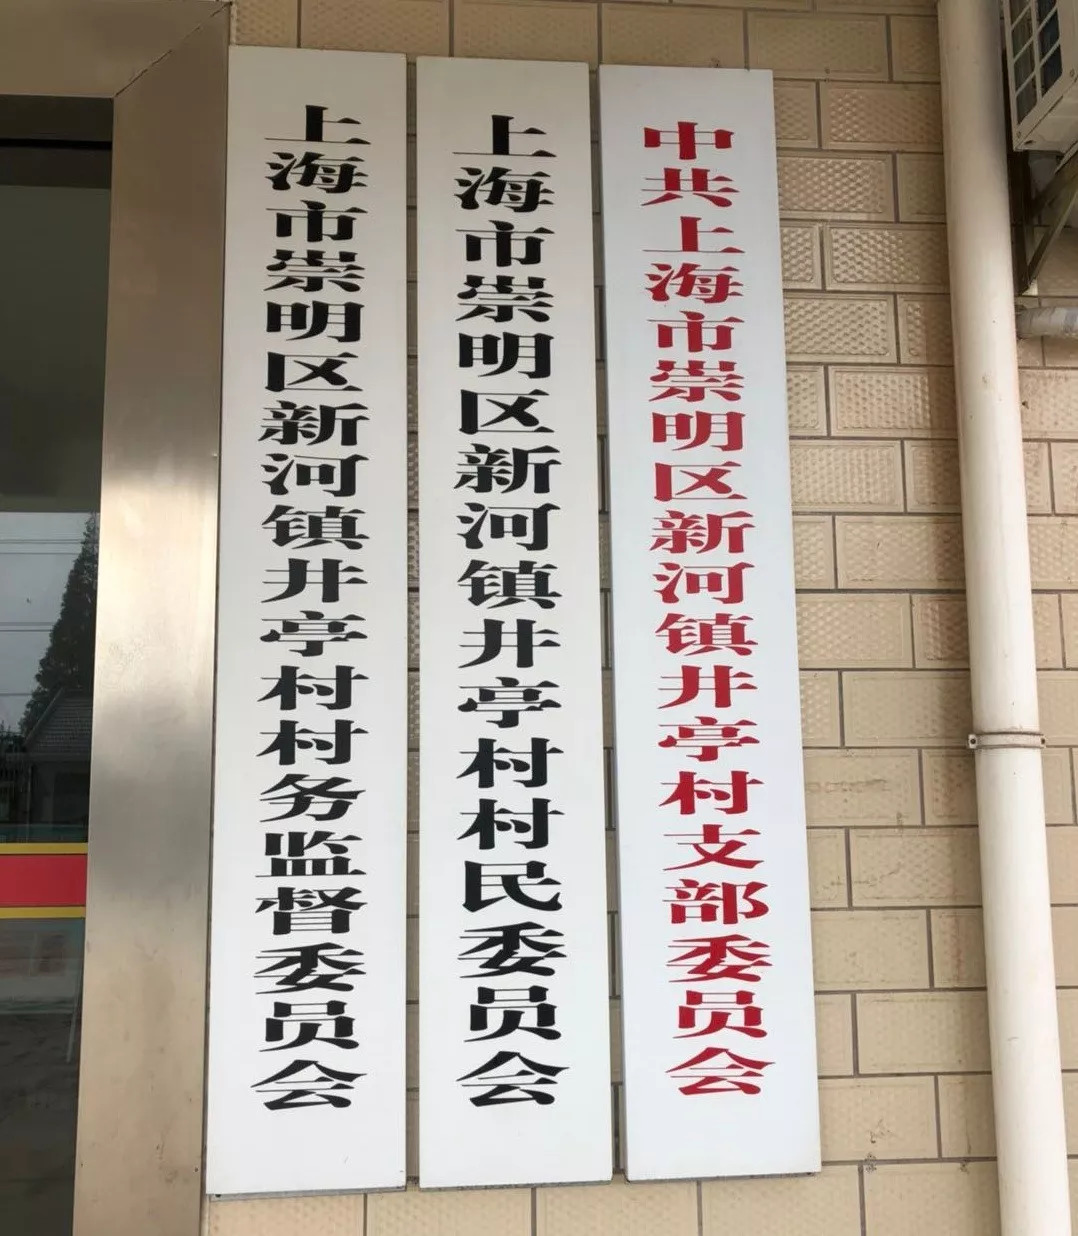 上海市崇明区新河镇井亭村村务监督委员会
上海市崇明区新河镇井亭村村民委员会
中共上海市崇明区新河镇井亭村支部委员会